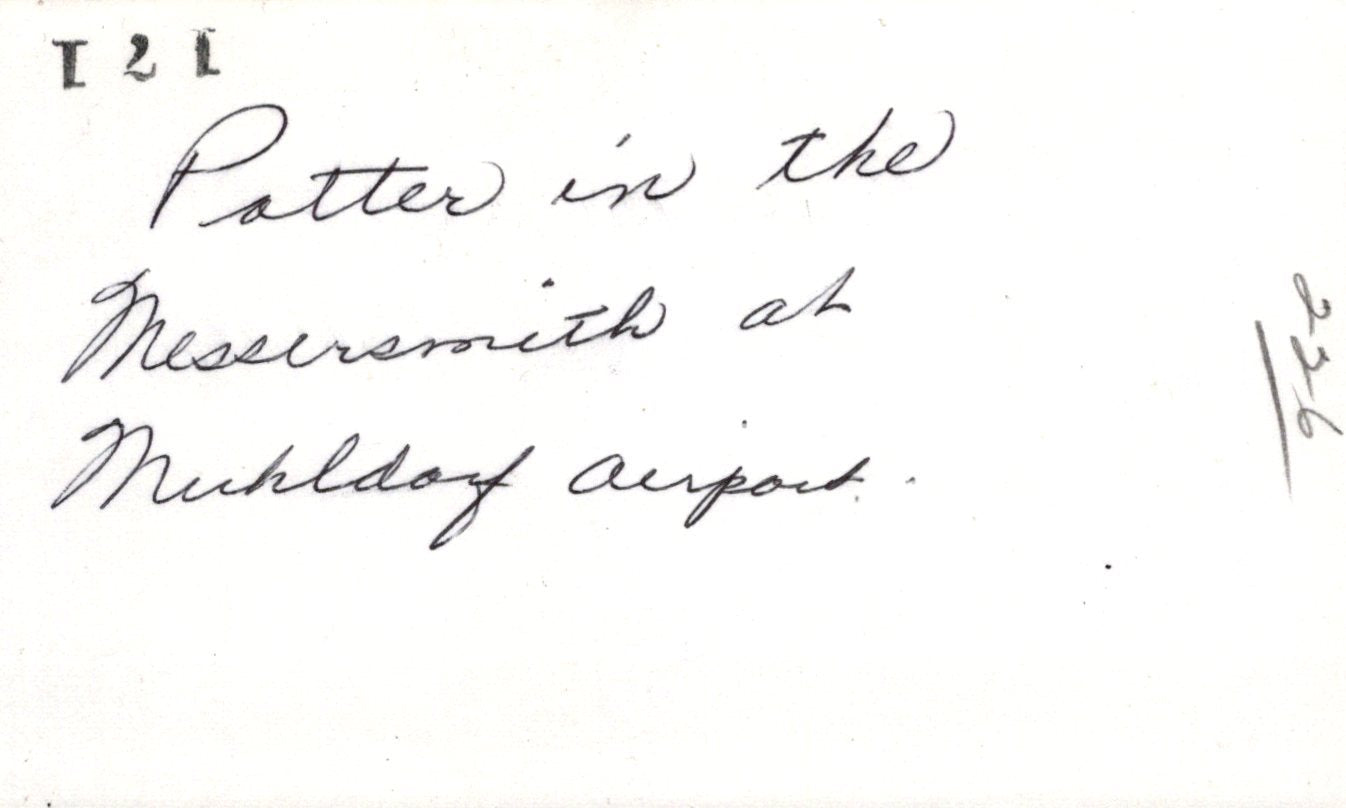 121
Potter in the
Messersmith at
Muhldorf airport.
236